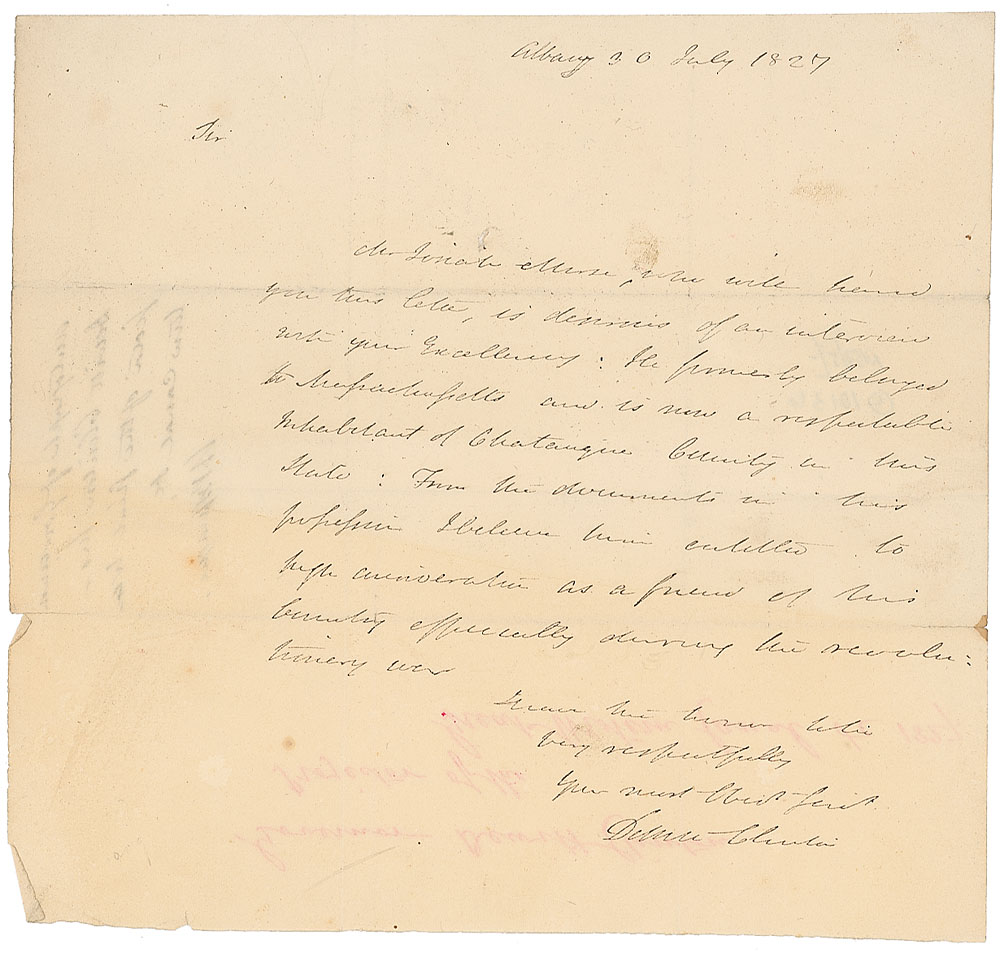 Albany 30 July 1827
Sir
Mr Josiah Morse, who will hand
you this letter, is desirous of an interview
with your Excellency: He formerly belonged
to Massachusetts and is now a respectable
inhabitant of Chatauque County in this
State: From the documents in his
possession I believe him entitled to
high consideration as a friend of his
Country especially during the revolu:
tionary war
I have the honor to be
very respectfully
Your most Obedt Servt
DeWitt Clinton
Governor Dewitt Clinton
Projector of the
Great Western Canal